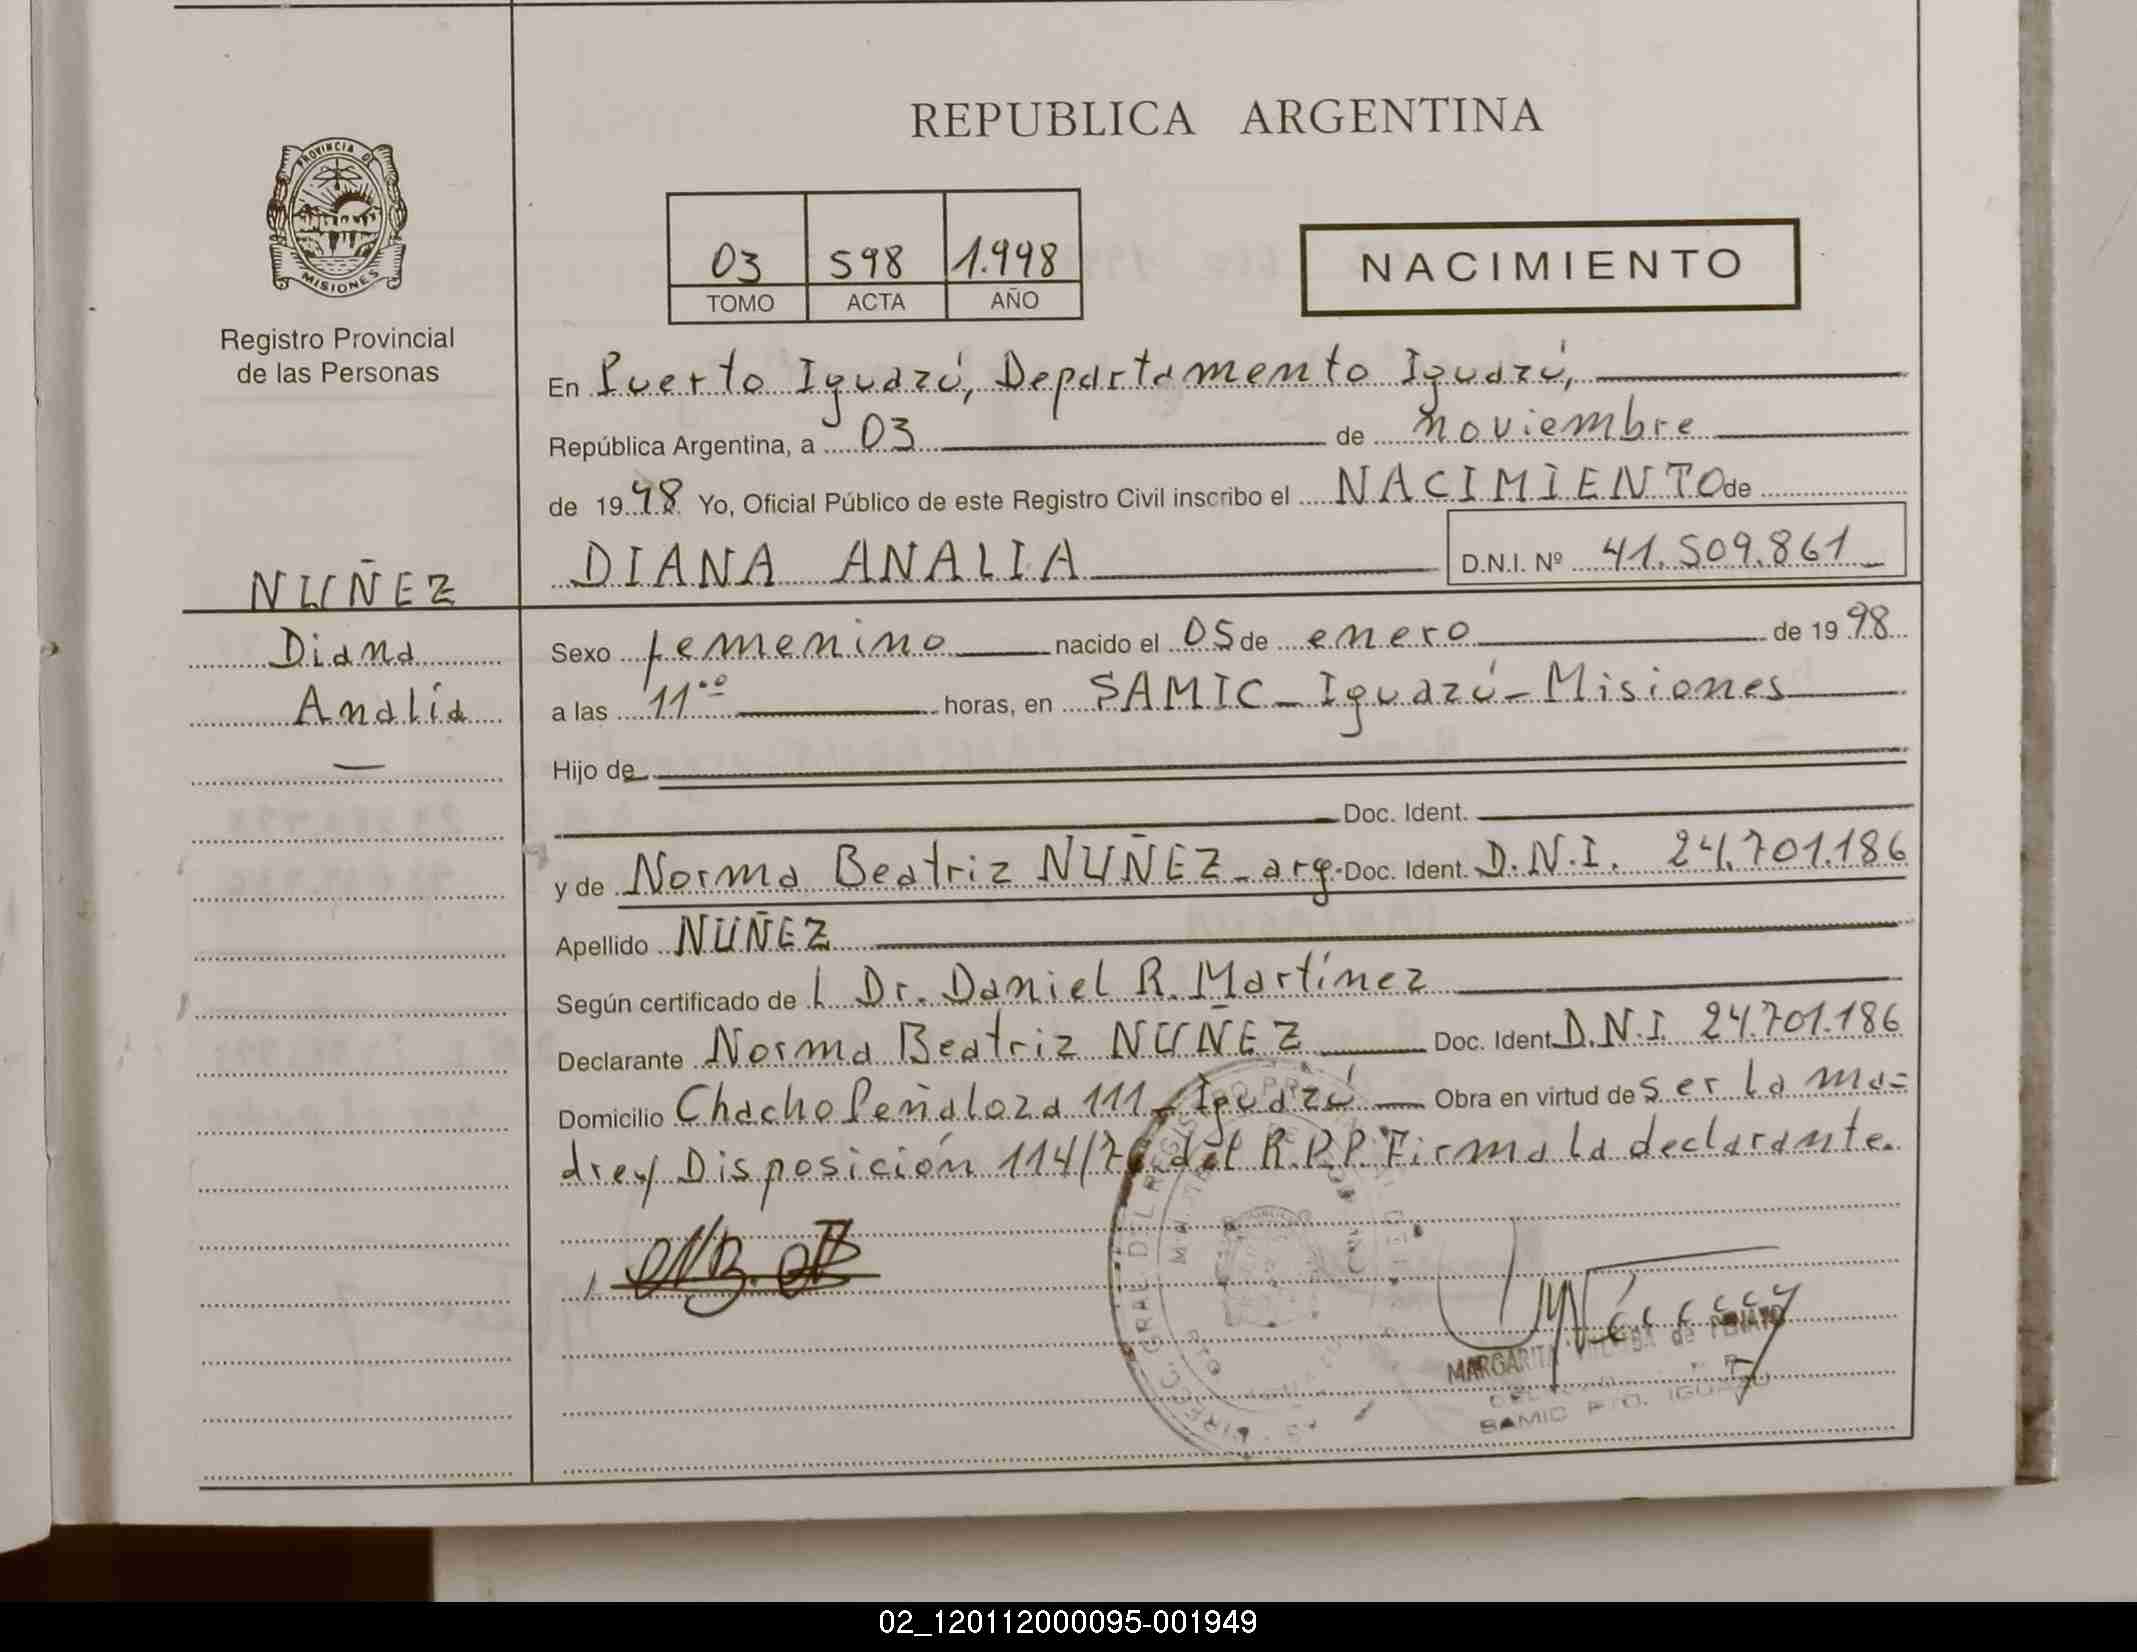 REPUBLICA ARGENTINA
PROVINCIA DE
MISIONES
Registro Provincial
de las Personas
03 598 1.998
TOMO ACTA AÑO
NACIMIENTO
En Puerto Iguazú, Departamento Iguazú,
República Argentina, a 03 de noviembre
de 1998 Yo, Oficial Público de este Registro Civil inscribo el NACIMIENTO de
NUÑEZ
Diana
Analía
DIANA ANALIA D.N.I. Nº 41.509.861
Sexo femenino nacido el 05 de enero de 1998
a las 11ºº horas, en SAMIC - Iguazú - Misiones
Hijo de
Doc. Ident.
y de Norma Beatriz NUÑEZ - arg. Doc. Ident. D.N.I. 24.701.186
Apellido NUÑEZ
Según certificado de Dr. Daniel R. Martínez
Declarante Norma Beatriz NUÑEZ Doc. Ident. D.N.I. 24.701.186
Domicilio Chacho Peñaloza 111 - Iguazú Obra en virtud de ser la ma=
dre y Disposición 114/76 del R.P.P. Firma la declarante.
MARGARITA de
SAMIC PTO. IGUAZU
02_120112000095-001949